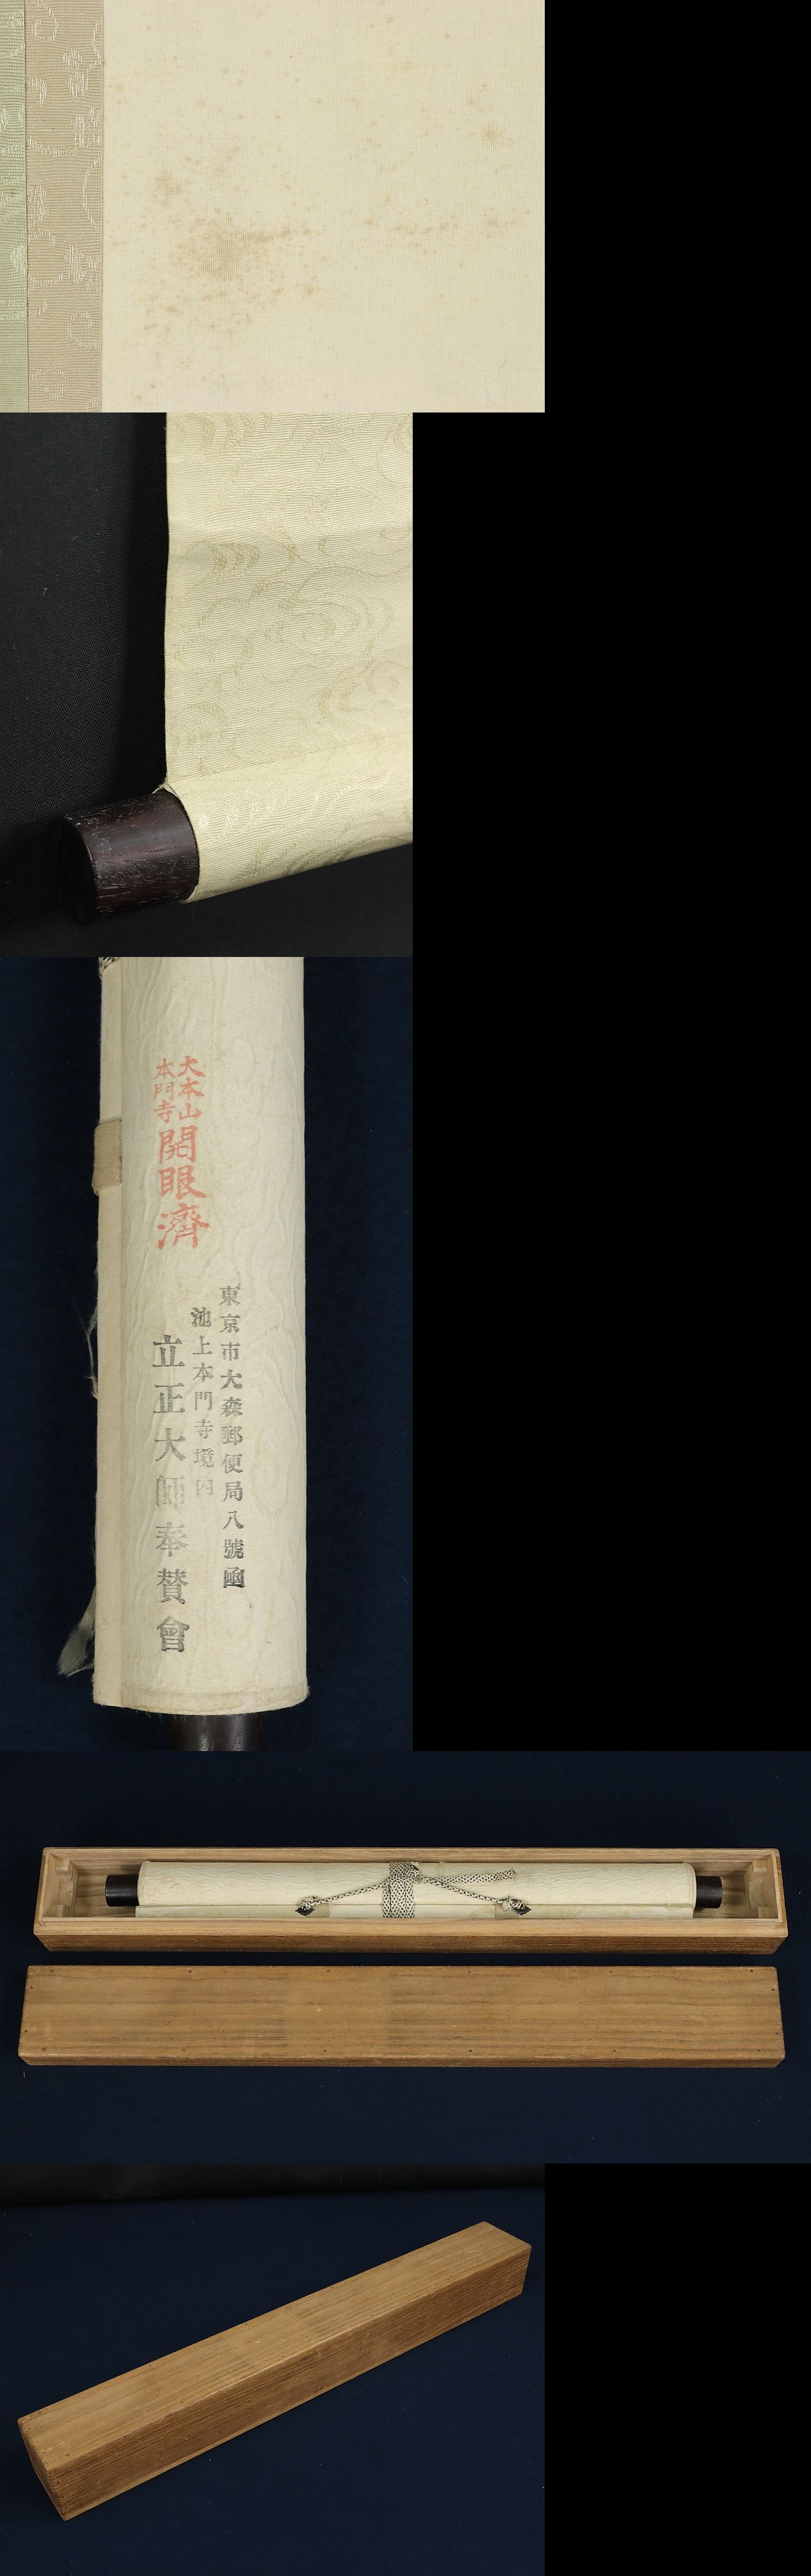 大本山
本門寺
開眼濟
東京市大森郵便局八號函
池上本門寺境内
立正大師奉賛會